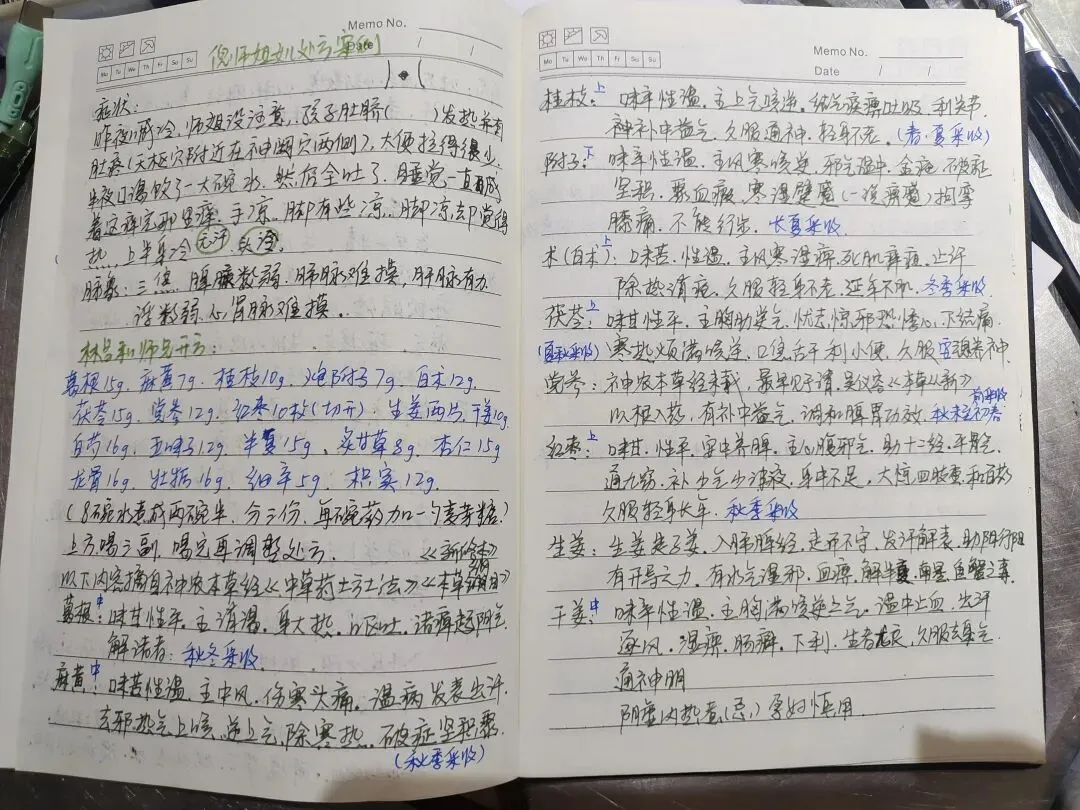 Memo No.
Mo Tu We Th Fr Sa Su
Date / /
倪师姐刘处方案例
症状:
昨夜 冷, 师姐没注意, 孩子肚脐( )发热并有
肚疼(天枢穴附近在神阙穴两侧), 大便拉得很少,
半夜口渴饮了一大碗水, 然后全吐了, 睡觉一直
着这痒完那里痒, 手凉, 脚有些凉, 脚凉却觉得
热, 上半身冷 无汗 头冷.
脉象: 三倍, 脾 数弱, 肺脉难摸, 肝脉有力
浮数弱, 心肾脉难摸.
林吕和师兄开方:
葛根15g, 麻黄7g, 桂枝10g, 炮附子7g, 白术12g,
茯苓15g, 党参12g, 红枣10枚(切开), 生姜两片, 干姜10g
白芍16g, 五味子12g, 半夏15g, 炙甘草8g, 杏仁15g
龙骨16g, 牡蛎16g, 细辛5g, 枳实12g.
(8碗水煮成两碗半, 分三份, 每碗药加一勺麦芽糖)
上方喝三副, 喝完再调整处方. 《新修本草》
以下内容摘自神农本草经《中草药土方土法》《本草纲目》
葛根:中 味甘性平, 主消渴, 身大热, 呕吐, 诸痹起阴气
解诸毒: 秋冬采收
麻黄:中 味苦性温, 主中风, 伤寒头痛, 温病, 发表出汗,
去邪热气, 上咳, 逆上气, 除寒热, 破症坚积聚
(秋季采收)
Memo No.
Mo Tu We Th Fr Sa Su
Date / /
桂枝:上 味辛性温, 主上气咳逆, 结气痰痹吐吸, 利关节
神补中益气, 久服通神, 轻身不老. (春·夏采收)
附子:下 味辛性温, 主风寒咳逆, 邪气温中, 金疮, 破症
坚积, 聚血瘕, 寒湿躄 拘挛
膝痛, 不能行步, 长夏采收
术(白术):上 味苦, 性温, 主风寒湿痹, 死肌痉疸, 止汗
除热消食, 久服轻身不老, 延年不饥. 冬季采收
茯苓:上 味甘性平, 主胸胁逆气, 忧恚, 惊邪恐悸, 心下结痛
(夏秋采收) 寒热烦满咳逆, 口焦舌干利小便, 久服安魂养神
党参: 神农本草经未载, 最早见于清·吴仪洛《本草从新》
以根入药, 有补中益气, 调和脾胃功效, 秋末初春
前采收
红枣:上 味甘, 性平, 安中养脾, 主心腹邪气, 助十二经, 平胃气,
通九窍, 补少气少津液, 身中不足, 大惊四肢重, 和百药
久服轻身长年. 秋季采收
生姜: 生姜是子姜, 入肺脾经, 走而不守, 发汗解表, 助阳行阴
有开导之力, 有水气湿邪, 血痹, 解半夏, 南星, 鱼蟹之毒
干姜:中 味辛性温, 主胸满咳逆上气, 温中止血, 出汗
逐风, 湿痹, 肠澼, 下利, 生者尤良, 久服去臭气
通神明
阴虚内热者(忌), 孕妇慎用